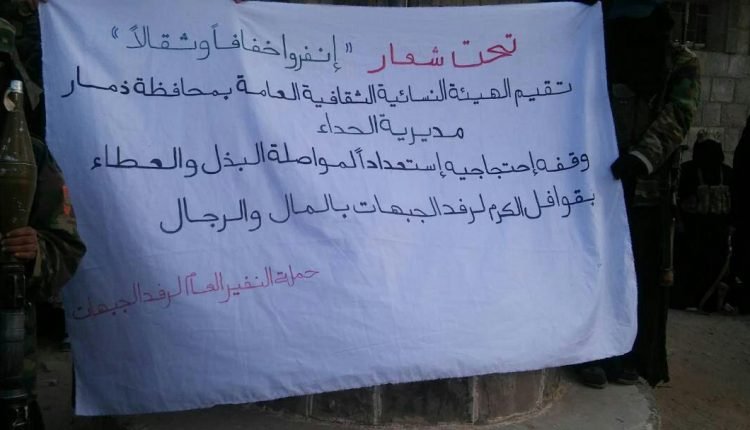 تحت شعار " إنفروا خفافاً وثقالاً "
تقيم الهيئة النسائية الثقافية العامة بمحافظة ذمار
مديرية الحداء
وقفه إحتجاجيه إستعداداً لمواصلة البذل والعطاء
بقوافل الكرم لرفد الجبهات بالمال والرجال
حملة النفير العام لرفد الجبهات